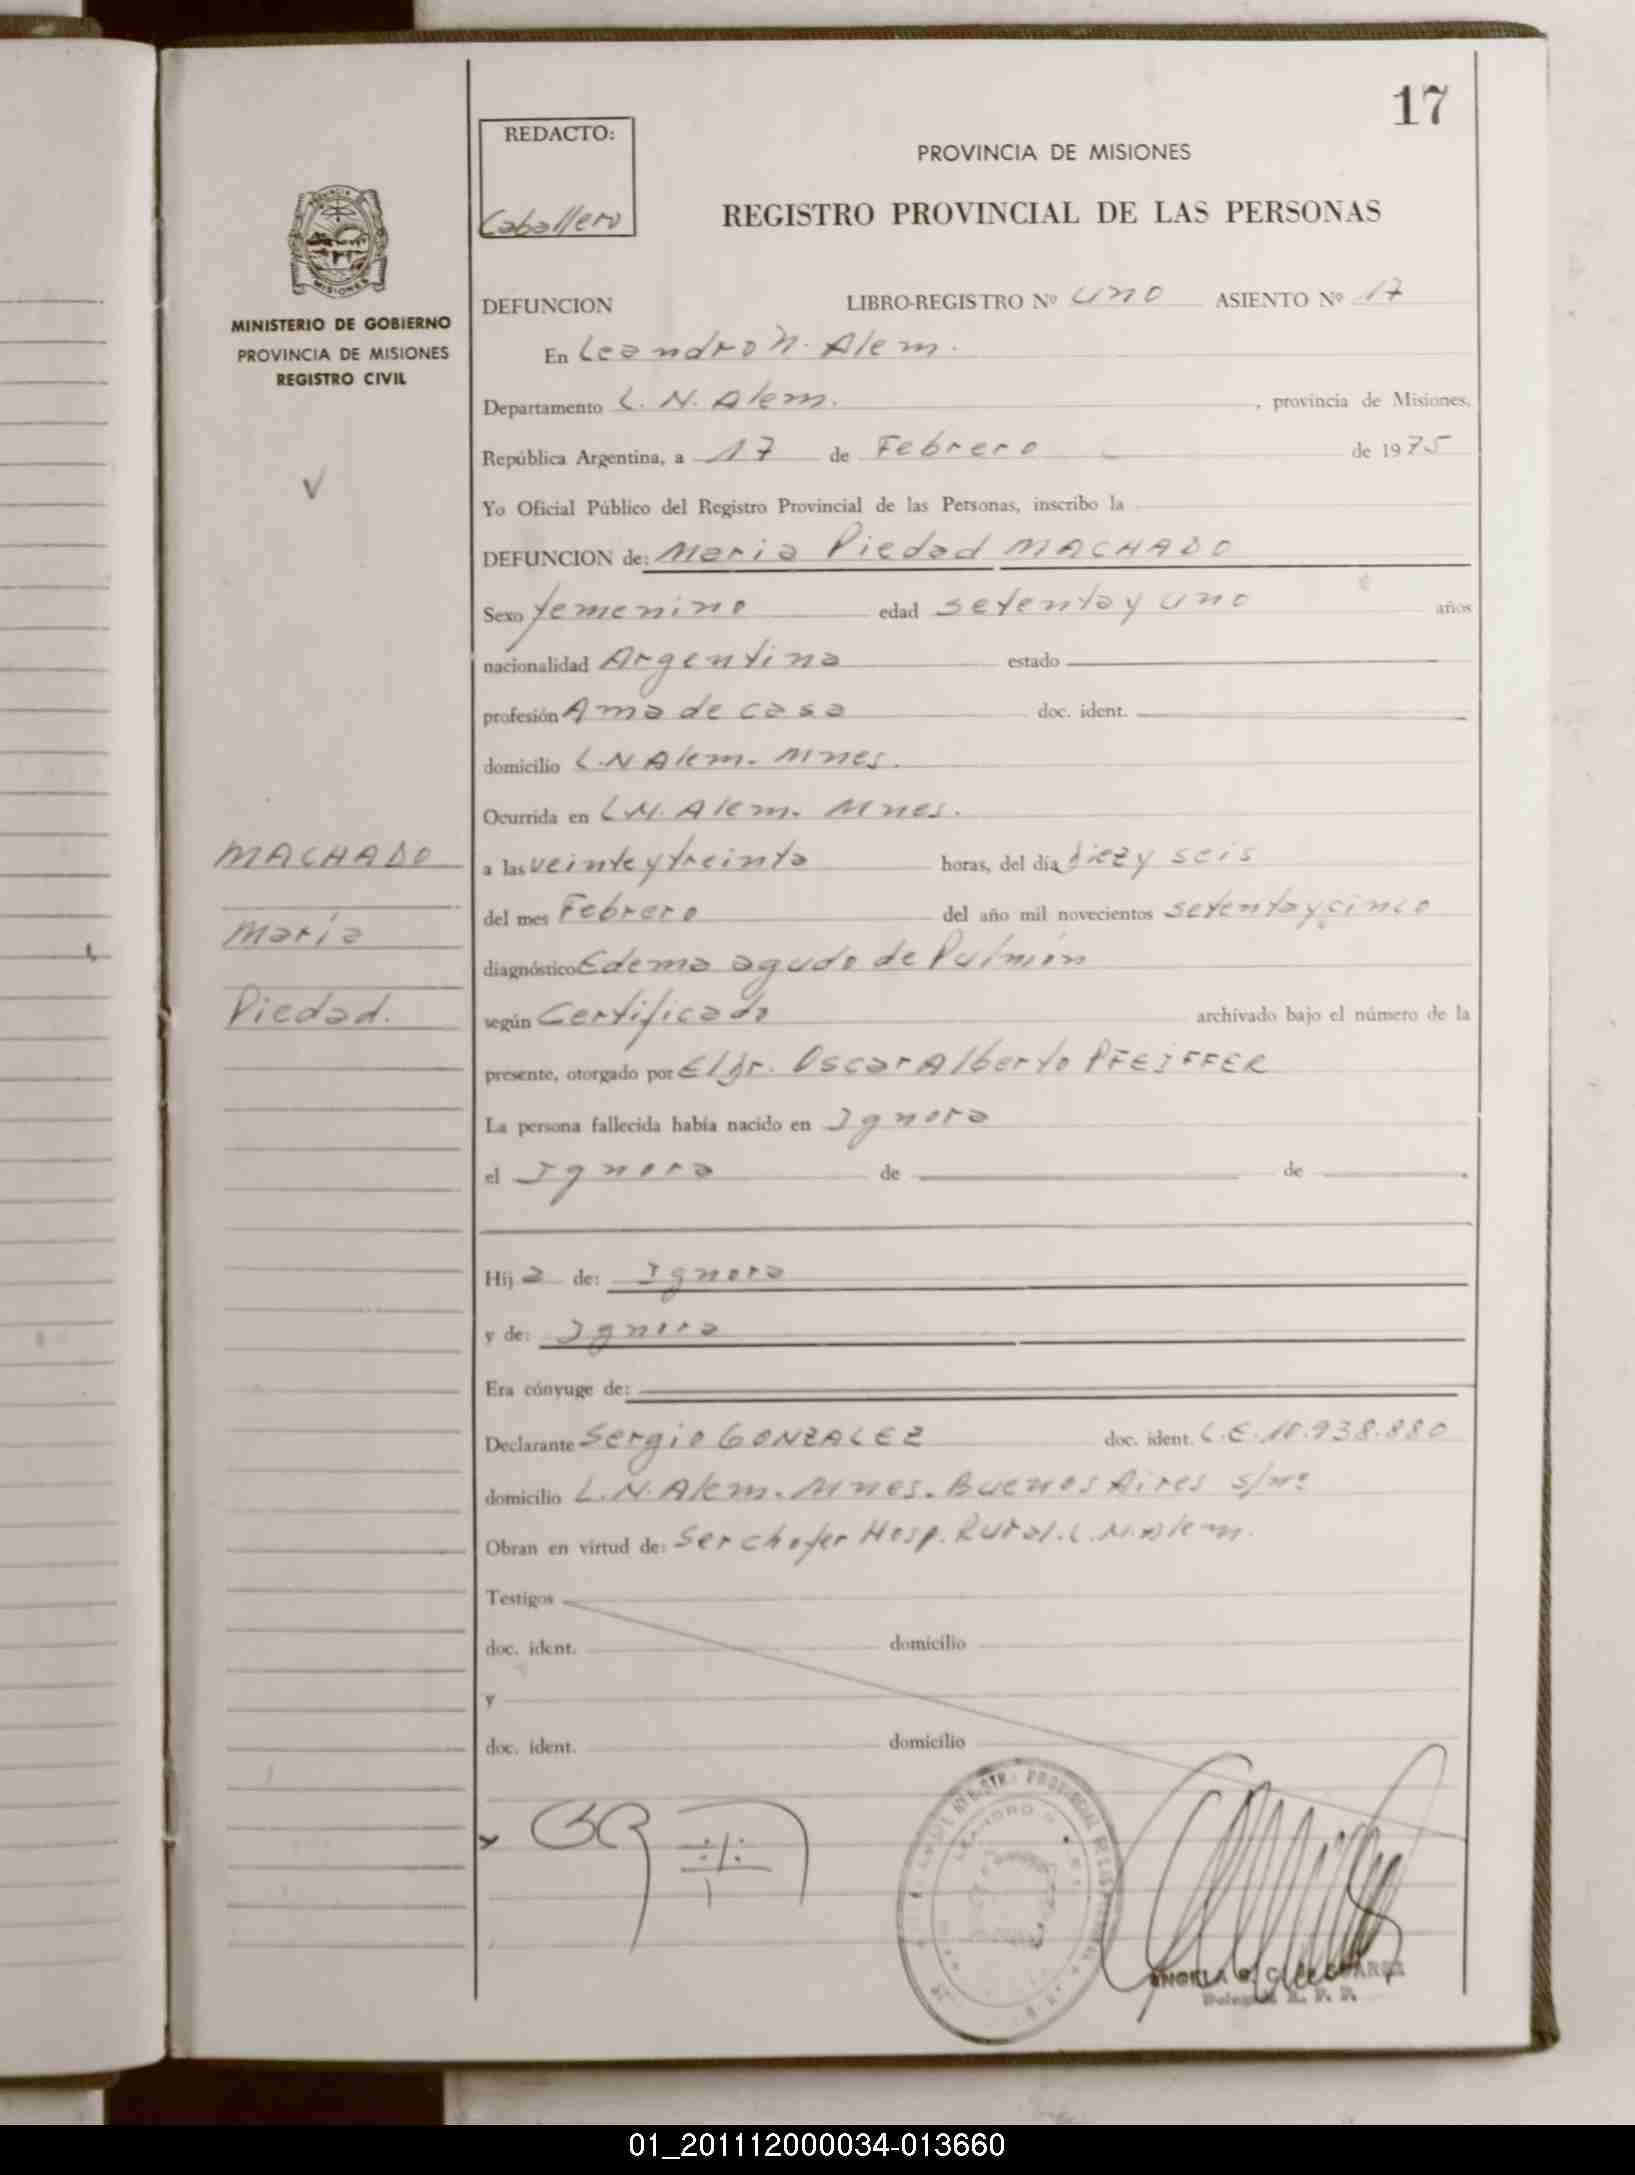 17
REDACTO:
Caballero
PROVINCIA DE MISIONES
REGISTRO PROVINCIAL DE LAS PERSONAS
MISIONES
MINISTERIO DE GOBIERNO
PROVINCIA DE MISIONES
REGISTRO CIVIL
DEFUNCION LIBRO-REGISTRO Nº uno ASIENTO Nº 17
En Leandro N. Alem.
Departamento L. N. Alem. , provincia de Misiones,
República Argentina, a 17 de Febrero de 1975
Yo Oficial Público del Registro Provincial de las Personas, inscribo la
DEFUNCION de: Maria Piedad MACHADO
Sexo femenino edad setenta y uno años
nacionalidad Argentina estado
profesión Ama de casa doc. ident.
domicilio L.N Alem. Mnes.
Ocurrida en L.N. Alem. Mnes.
a las veinte y treinta horas, del día diez y seis
del mes Febrero del año mil novecientos setenta y cinco
diagnóstico Edema agudo de Pulmón
según Certificado archivado bajo el número de la
presente, otorgado por El dr. Oscar Alberto PFEIFFER
La persona fallecida había nacido en Ignora
el Ignora de de .
Hija de: Ignora
y de: Ignora
Era cónyuge de:
Declarante Sergio GONZALEZ doc. ident. L.E. 10.938.880
domicilio L.N. Alem. Mnes. Buenos Aires s/nº
Obran en virtud de: Ser chofer Hosp. Rural. L.N. Alem.
Testigos
doc. ident. domicilio
y
doc. ident. domicilio
MACHADO
María
Piedad.
01_201112000034-013660